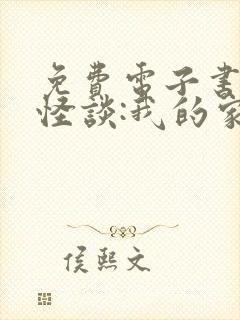 免費電子書
怪談:我的家
侯熙文